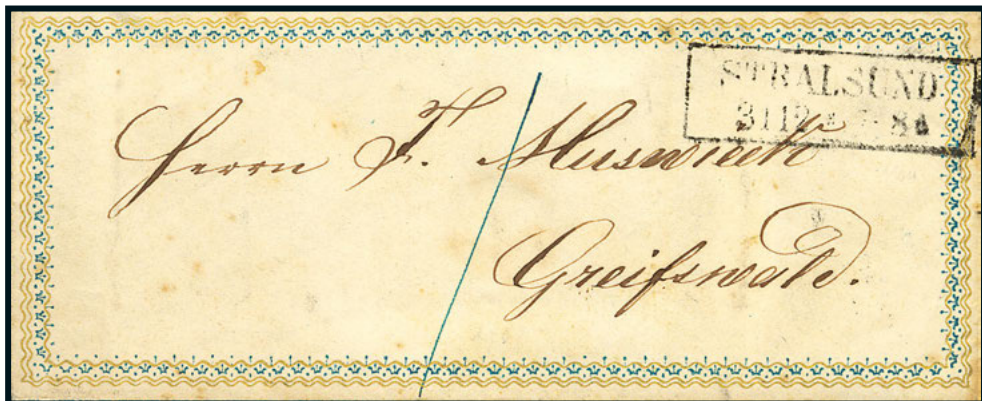 STRALSUND
3112 7-8
Herrn F. Muswieck
Greifswald.